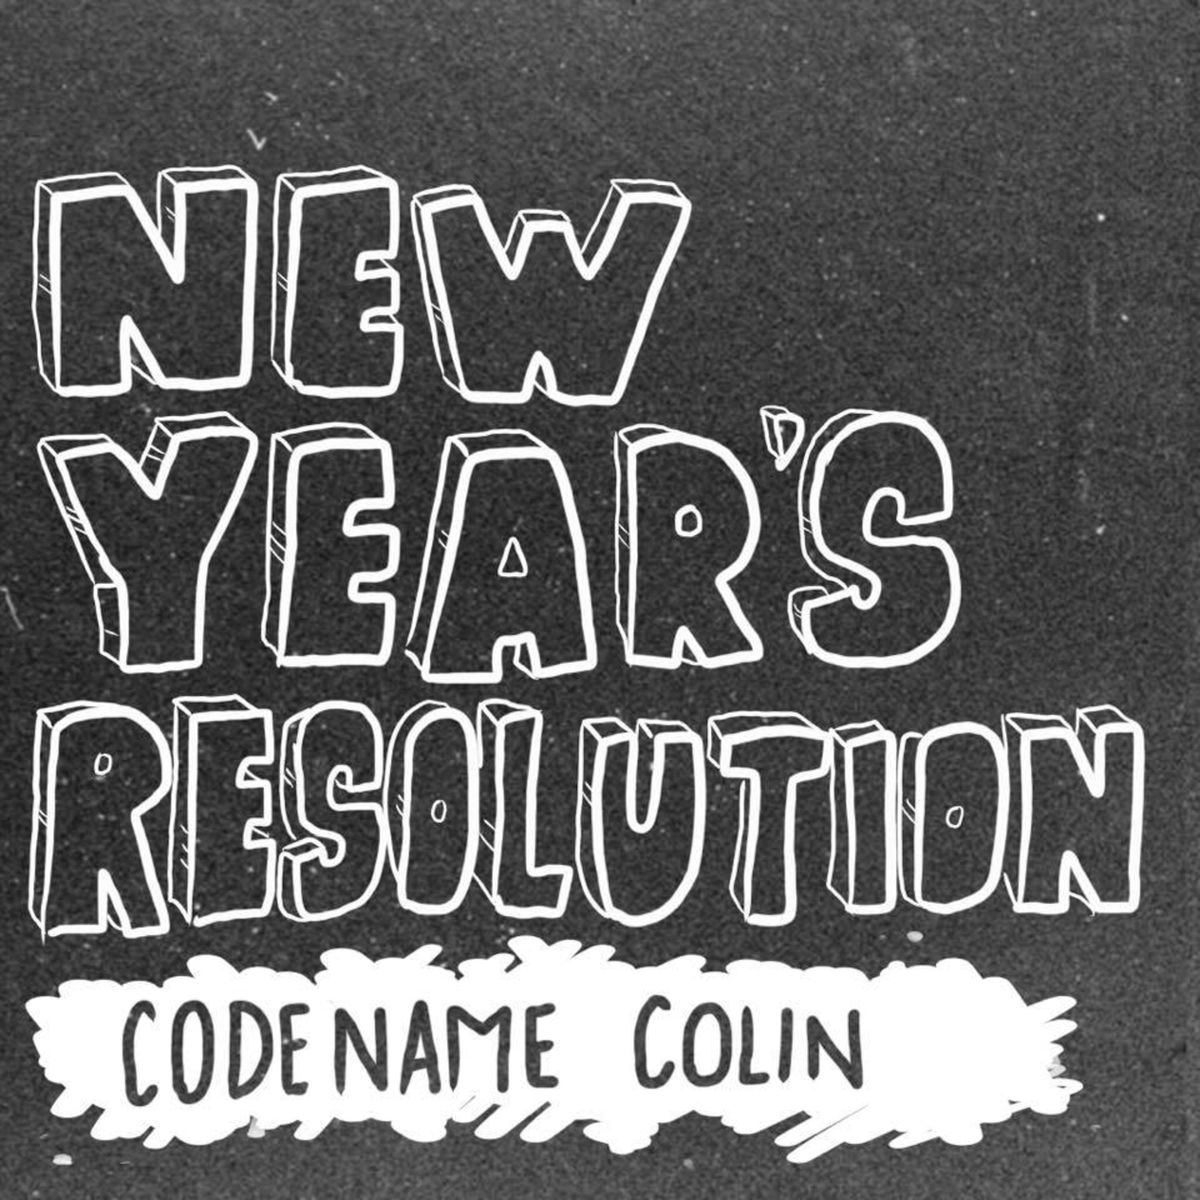 NEW
YEAR'S
RESOLUTION
CODENAME COLIN